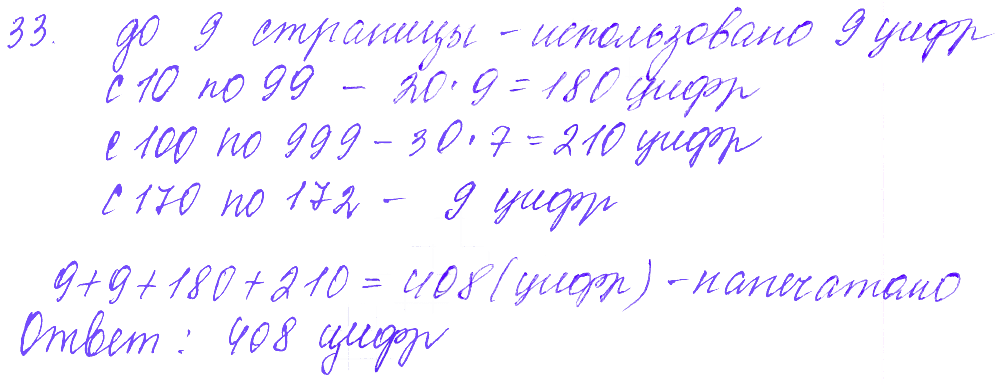 33. до 9 страницы - использовано 9 цифр
с 10 по 99 - 20·9=180 цифр
с 100 по 999 - 30·7=210 цифр
с 170 по 172 - 9 цифр
9+9+180+210=408 (цифр) - напечатано
Ответ: 408 цифр